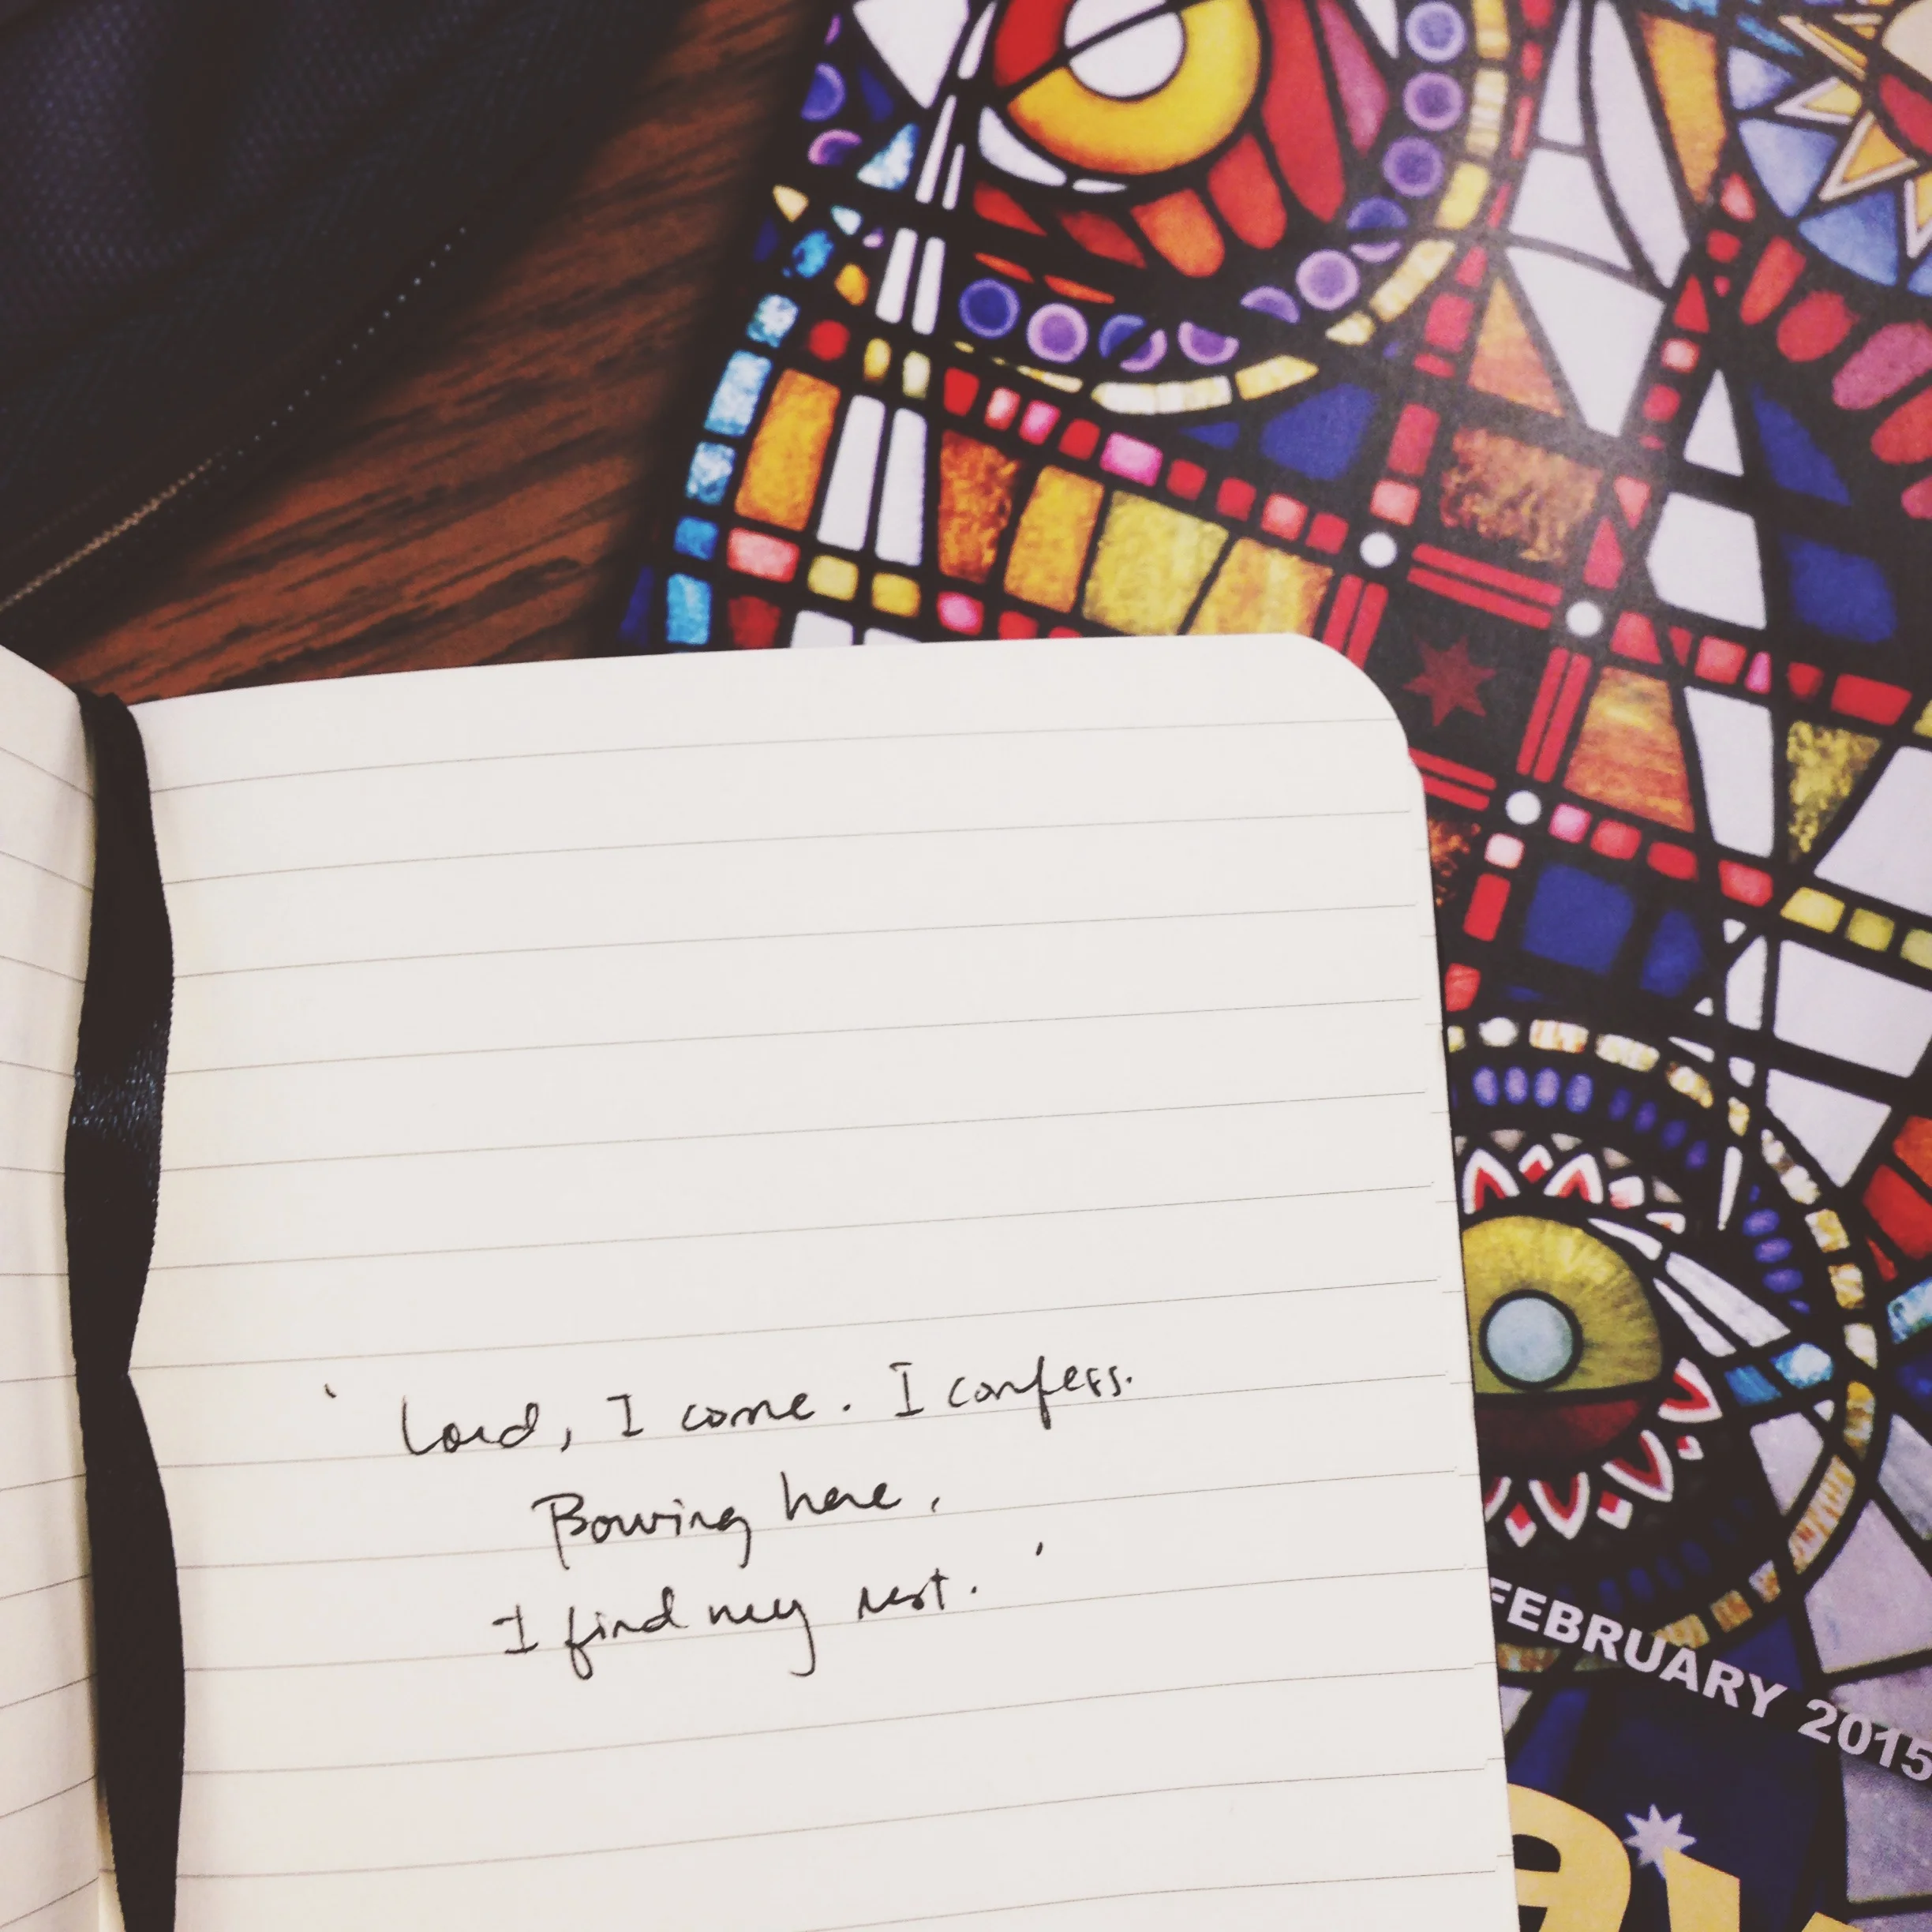 ' Lord, I come. I confess.
Bowing here,
I find my rest. '
FEBRUARY 2015